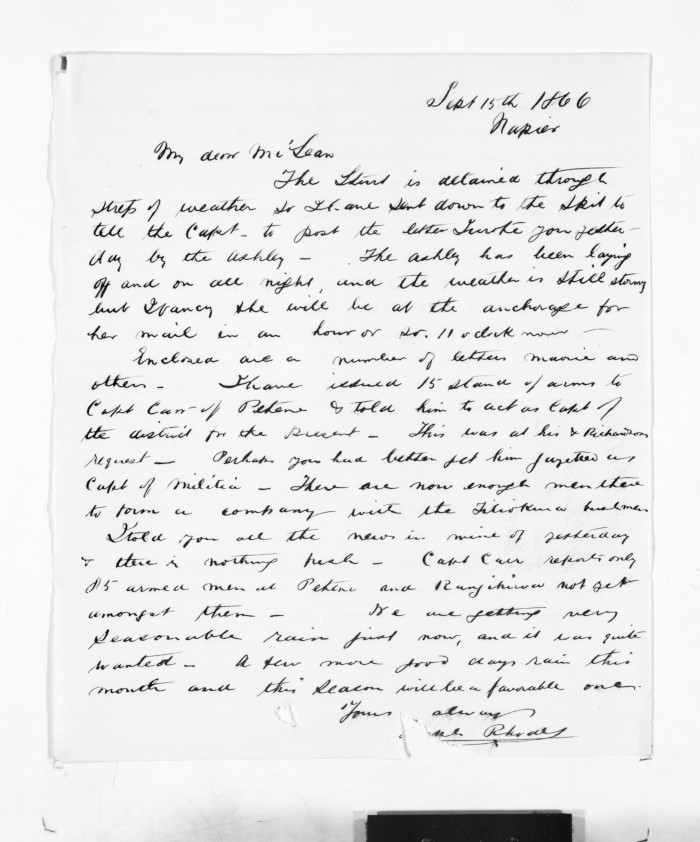 Sept 15th 1866
Napier
My dear McLean
The Sturt is detained through
stress of weather so I have sent down to the Spit to
tell the Capt - to post the letter I wrote you yester-
day by the Ashley - The Ashley has been laying
off and on all night, and the weather is still stormy
but I fancy she will be at the anchorage for
her mail in an hour or so. 11 oclock now -
Enclosed are a number of letters maorie and
others - I have issued 15 stand of arms to
Capt Carr of Petene & told him to act as Capt of
the district for the present - This was at his & Richardsons
request - Perhaps you had better get him gazetted as
Capt of Militia - There are now enough men there
to form a company with the bushmen
I told you all the news in mine of yesterday
& there is nothing fresh - Capt Carr reports only
85 armed men at Petene and Rangihiroa not yet
amongst them - We are getting very
seasonable rain just now, and it was quite
wanted - A few more good days rain this
month and this season will be a favorable one.
Yours always
Rhodes